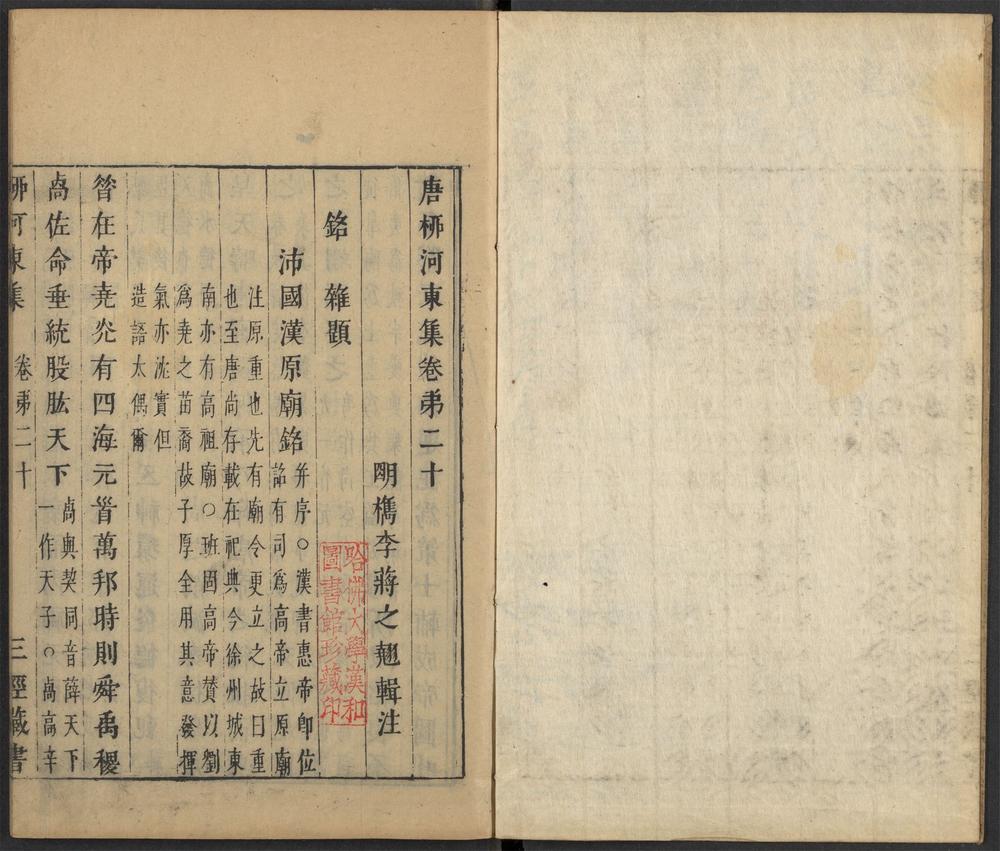 唐栁河東集卷苐二十
明檇李蔣之翹輯注
銘雜題
沛國漢原廟銘
并序○漢書惠帝卽位
詔有司爲高帝立原廟
注原重也先有廟今更立之故曰重
也至唐尚存載在祀典今徐州城東
南亦有高祖廟○班固高帝贊以劉
爲堯之苗裔故子厚全用其意發揮
氣亦沈實但
造語太偶爾
昝在帝堯光有四海元首萬邦時則舜禹稷
卨佐命垂統股肱天下
卨與契同音薛天下
一作天子○卨高辛
栁河東集 卷苐二十 三徑藏書
哈佛大學漢和
圖書館珍藏印